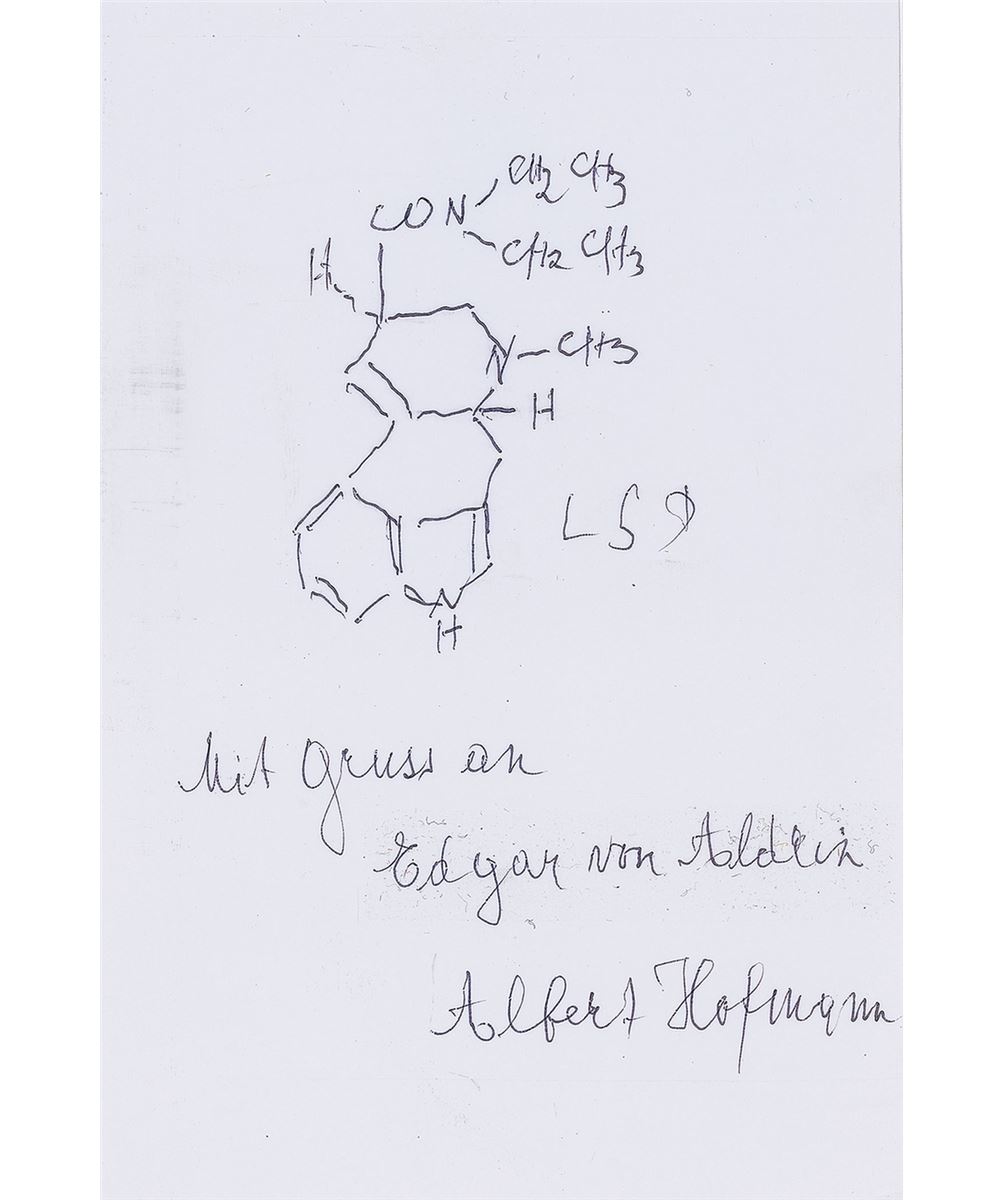 CON CH2 CH3
CH2 CH3
H
N-CH3
H
LSD
N
H
Mit Gruss an
Edgar von Aldrin
Albert Hofmann